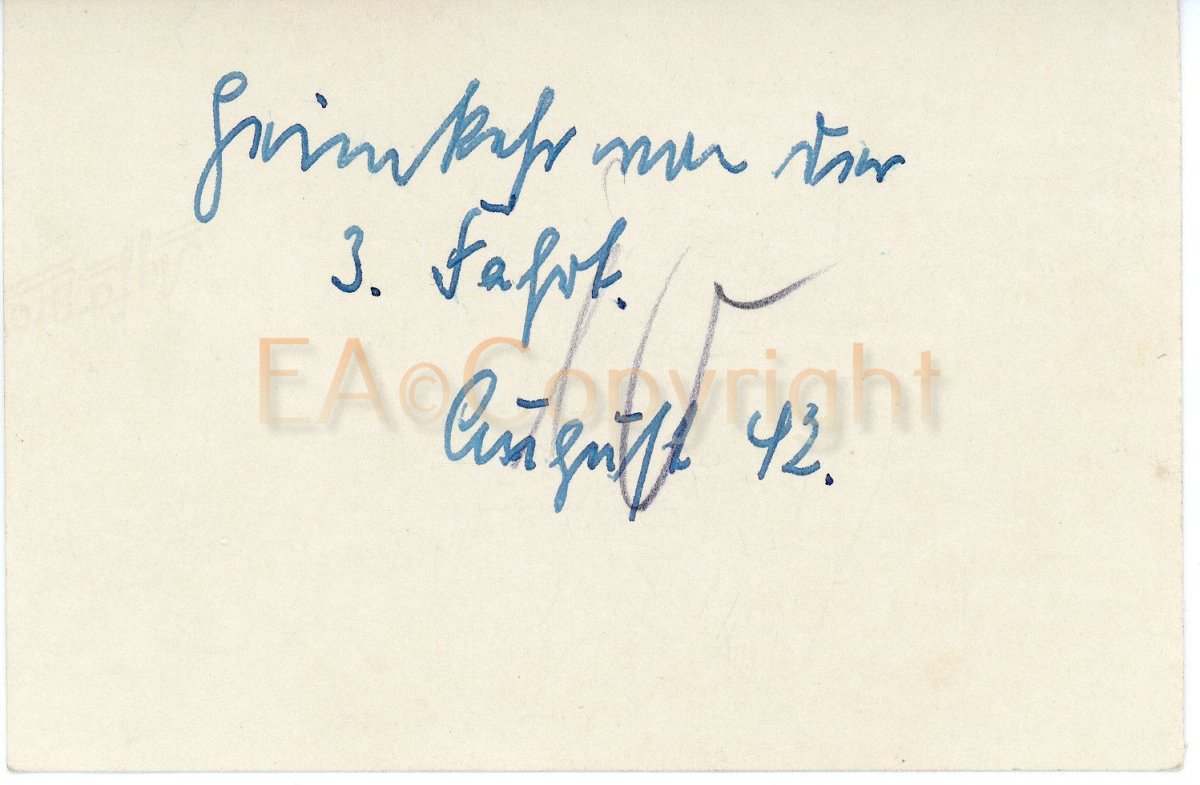 Heimkehr von der
3. Fahrt.
August 42.
EA©Copyright